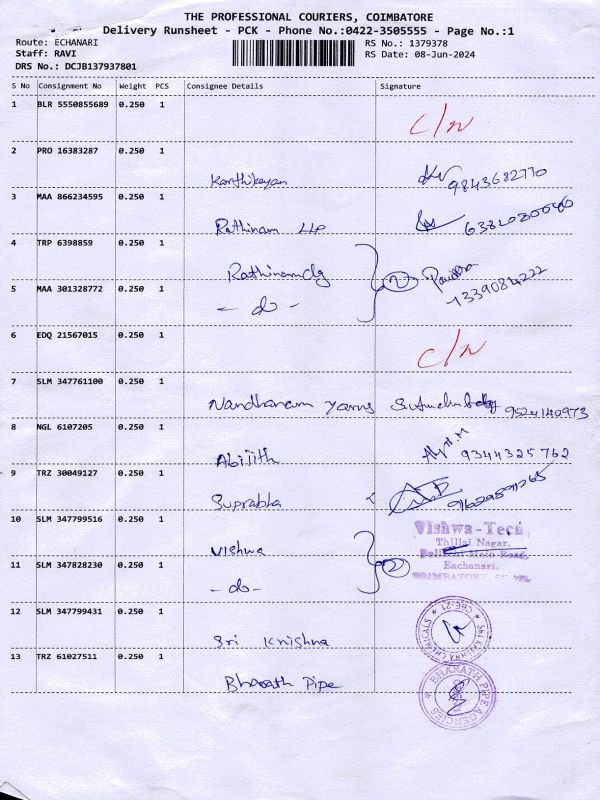 THE PROFESSIONAL COURIERS, COIMBATORE
Delivery Runsheet - PCK - Phone No.:0422-3505555 - Page No.:1
Route: ECHANARI RS No.: 1379378
Staff: RAVI RS Date: 08-Jun-2024
DRS No.: DCJB137937801
S No Consignment No Weight PCS Consignee Details Signature
1 BLR 5550855689 0.250 1 C/N
2 PRO 16383287 0.250 1
Karthikeyan 9843682770
3 MAA 866234595 0.250 1
Rathinam LLP 6382030040
4 TRP 6398859 0.250 1
Rathinam clg 2
5 MAA 301328772 0.250 1 7339084222
- do -
6 EDQ 21567015 0.250 1 C/N
7 SLM 347761100 0.250 1
Nandhanam Yarns 9524140973
8 NGL 6107205 0.250 1
Abijith 9344325762
9 TRZ 30049127 0.250 1
Suprabha
10 SLM 347799516 0.250 1 Vishwa-Tech,
Vishwa Thillai Nagar,
Main Road,
11 SLM 347828230 0.250 1 2 Eachanari,
- do - COIMBATORE
12 SLM 347799431 0.250 1
Sri Krishna SRI KRISHNA CHEMICALS CBE-21
13 TRZ 61027511 0.250 1
Bharath Pipe BHARATH PIPE AGENCIES